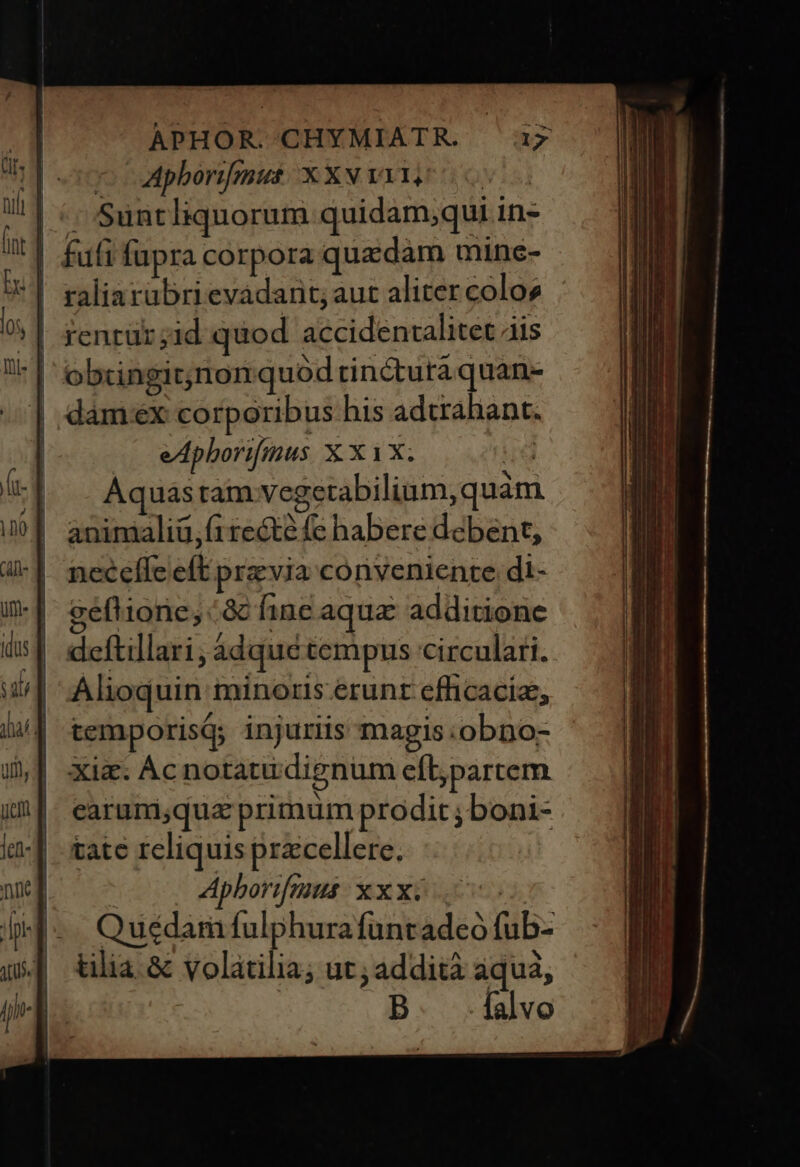 APHOR. CHYMIATR. 17
Aphoriſmus XXVIII.
Sunt liquorum quidam, qui in-
fuſi ſupra corpora quædam mine-
ralia rubri evadant; aut aliter colo-
rentur; id quod accidentaliter iis
obtingit, non quòd tincturá quan-
dam ex corporibus his adtrahant.
Aphoriſmus XXIX.
Aquas tam vegetabilium, quàm
animaliũ, ſi rectè ſe habere debent,
neceſſe eſt prævia conveniente di-
geſtione, & ſine aquæ additione
deſtillari, ádque tempus circulari.
Alioquin minoris erunt efficaciæ,
temporisq́; injuriis magis obno-
xiæ. Ac notatu dignum eſt, partem
earum, quæ primùm prodit, boni-
tate reliquis præcellere.
Aphoriſmus XXX.
Quędam ſulphura ſunt adeò ſub-
tilia & volatilia, ut, addità aquà,
B ſalvo